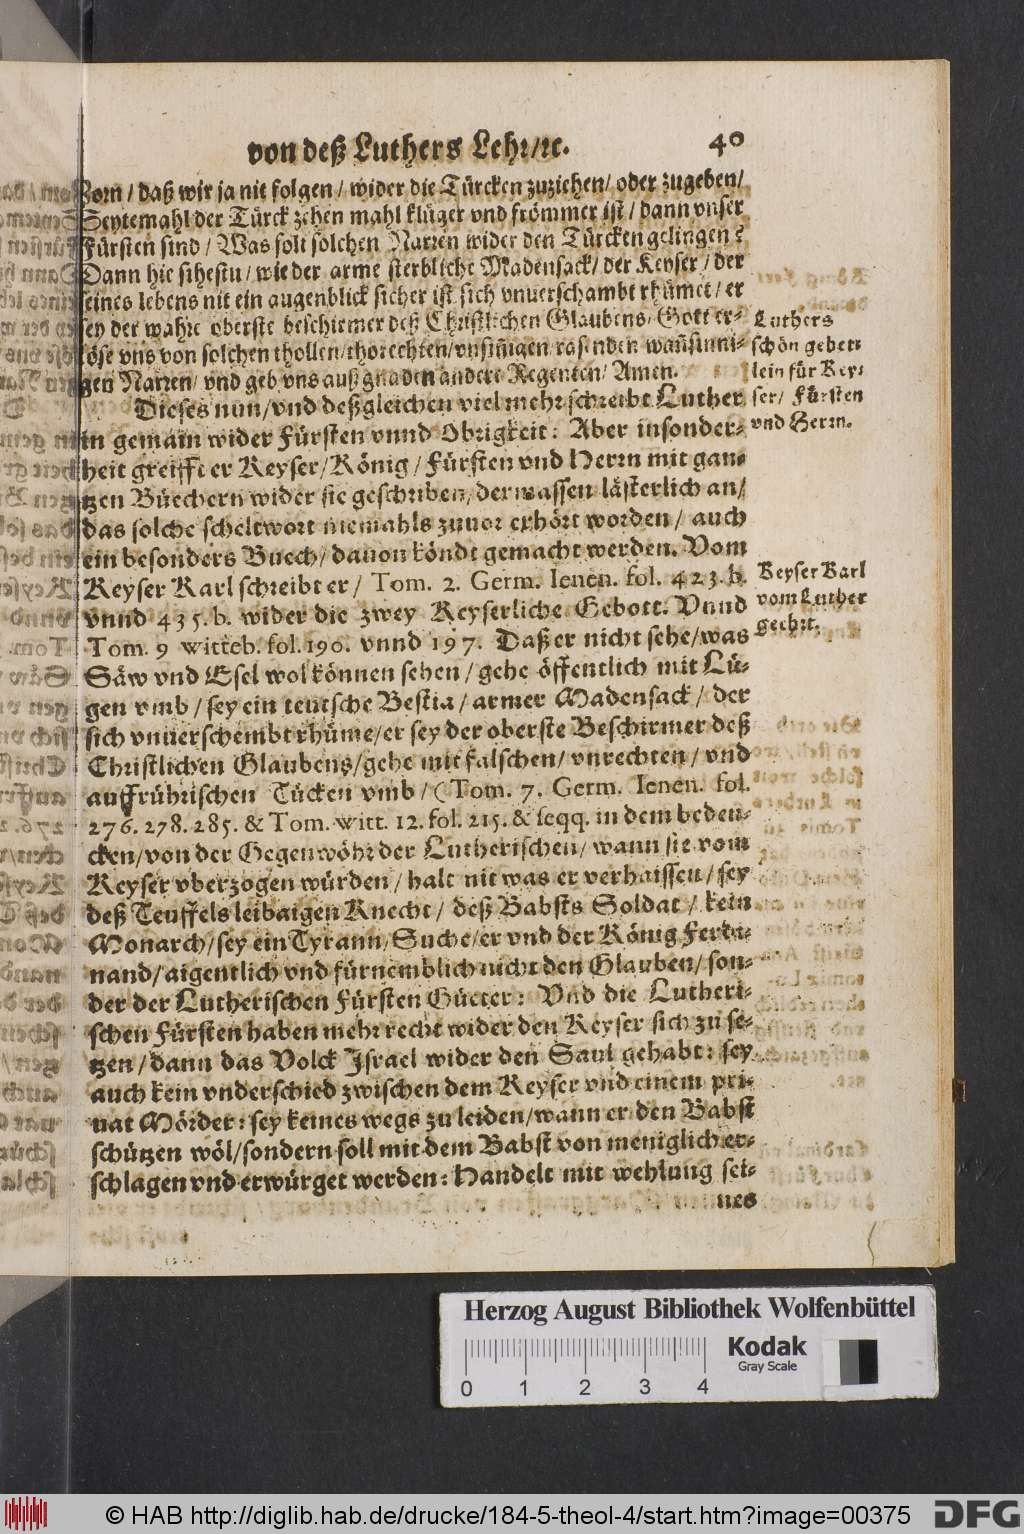 von deß Luthers Lehr/ꝛc. 40
Zorn / daß wir ja nit folgen / wider die Türcken zuziehen / oder zugeben /
Seytemahl der Türck zehen mahl klüger vnd frömmer ist / dann vnser
Fürsten sind / Was solt solchen Narren wider den Türcken gelingen?
Dann hie sihestu / wie der arme sterbliche Madensack / der Keyser / der
seines lebens nit ein augenblick sicher ist sich vnuerschambt rhümet / er
sey der wahre oberste beschirmer deß Christlichen Glaubens / Gott er-
löse vns von solchen thollen / thorechten / vnsinigen rasenden wansinni-
gen Narren / vnd geb vns auß gnaden andere Regenten / Amen.
Luthers
schön gebet-
lein für Key-
ser / Fürsten
vnd Herrn.
Dieses nun / vnd deßgleichen viel mehr schreibt Luther
in gemain wider Fürsten vnnd Obrigkeit: Aber insonder-
heit greifft er Keyser / König / Fürsten vnd Herrn mit gan-
tzen Büechern wider sie geschriben / dermassen lästerlich an /
das solche scheltwort niemahls zuuor erhört worden / auch
ein besonders Buech / dauon köndt gemacht werden. Vom
Keyser Karl schreibt er / Tom. 2. Germ. Ienen. fol. 423. b.
vnnd 435. b. wider die zwey Keyserliche Gebott. Vnnd
Tom. 9 witteb. fol. 190. vnnd 197. Daß er nicht sehe / was
Keyser Karl
vom Luther
geehrt.
Säw vnd Esel wol können sehen / gehe öffentlich mit Lü-
gen vmb / sey ein teutsche Bestia / armer Madensack / der
sich vnuerschembt rhüme / er sey der oberste Beschirmer deß
Christlichen Glaubens / gehe mit falschen / vnrechten / vnd
auffrührischen Tücken vmb / (Tom. 7. Germ. Ienen. fol.
276. 278. 285. & Tom. witt. 12. fol. 215. & seqq. in dem beden-
cken / von der Gegenwöhr der Lutherischen / wann sie vom
Keyser vberzogen würden / halt nit was er verhaissen / sey
deß Teuffels leibaigen Knecht / deß Babsts Soldat / kein
Monarch / sey ein Tyrann / Suche / er vnd der König Ferdi-
nand / aigentlich vnd fürnemblich nicht den Glauben / son-
der der Lutherischen Fürsten Güeter: Vnd die Lutheri-
schen Fürsten haben mehr recht wider den Keyser sich zu se-
tzen / dann das Volck Israel wider den Saul gehabt: sey
auch kein vnderschied zwischen dem Keyser vnd einem pri-
uat Mörder: sey keines wegs zu leiden / wann er den Babst
schützen wöl / sondern soll mit dem Babst von meniglich er-
schlagen vnd erwürget werden: Handelt mit wehlung sei-
nes
Herzog August Bibliothek Wolfenbüttel
Kodak
Gray Scale
0 1 2 3 4
© HAB http://diglib.hab.de/drucke/184-5-theol-4/start.htm?image=00375
DFG